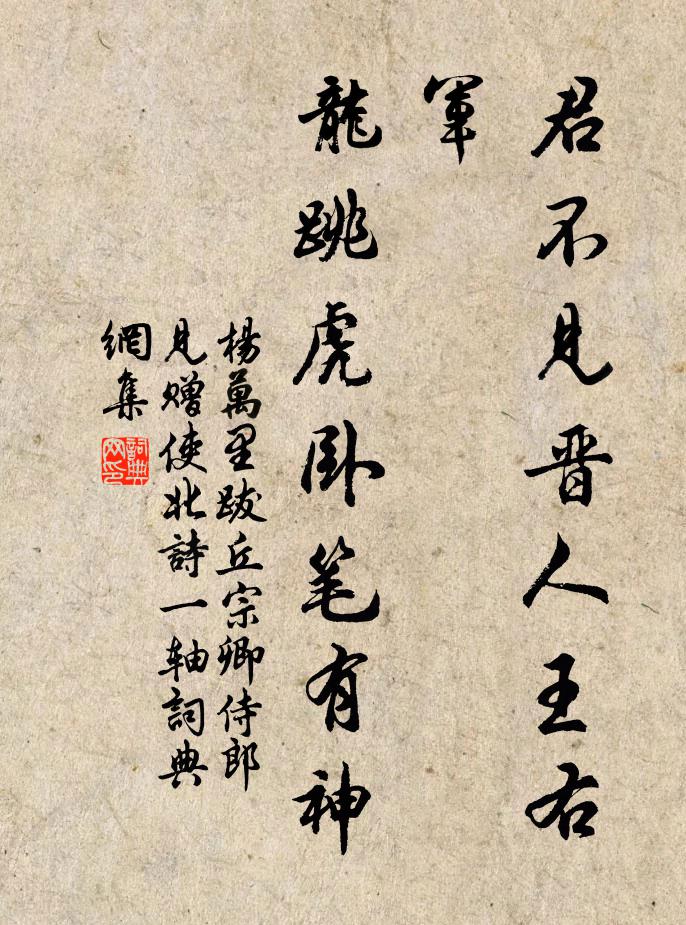 君不见晋人王右
軍
龍跳虎卧笔有神
楊萬里跋丘宗卿侍郎
見赠使北詩一軸詞典
網集
詞典
网印